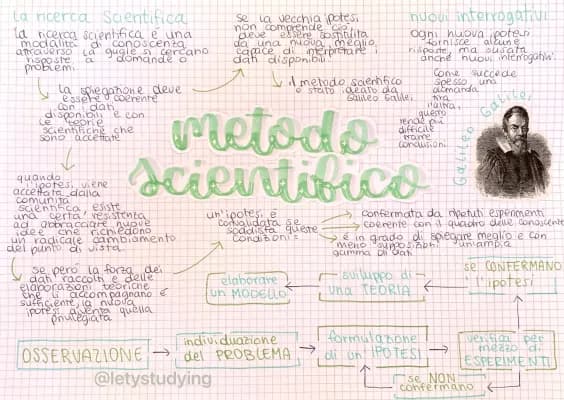 la ricerca Scientifica
la ricerca scientifica è una
modalità di conoscenza
attraverso la quale si cercano
risposte a domande o
problemi.
la spiegazione deve
essere coerente
con i dati
disponibili e con
le teorie
scientifiche che
sono accettate
quando
l'ipotesi viene
accettata dalla
comunità
scientifica esiste
una certa resistenza
ad abbracciare nuove
idee che richiedono
un radicale cambiamento
del punto di vista.
se però la forza dei
dati raccolti e delle
elaborazioni teoriche
che li accompagnano è
sufficiente, la nuova
ipotesi diventa quella
privilegiata
se la vecchia ipotesi
non comprende ciò
deve essere sostituita
da una nuova, meglio
capace di interpretare i
dati disponibili.
il metodo scientifico
è stato ideato da
Galileo Galilei
metodo
scientifico
nuovi interrogativi
ogni nuova ipotesi
fornisce alcune
risposte, ma suscita
anche nuovi interrogativi.
Come succede
spesso una
domanda
tira
l'altra,
questo
rende più
difficile
trarre
conclusioni.
Galileo Galilei
un'ipotesi è
convalidata se
soddisfa queste
condizioni:
confermata da ripetuti esperimenti
coerente con il quadro delle conoscenze
è in grado di spiegare meglio e con
meno supposizioni un'ampia
gamma di dati
elaborare
un MODELLO
sviluppo di
una TEORIA
se CONFERMANO
l'ipotesi
OSSERVAZIONE
individuazione
del PROBLEMA
formulazione
di un' IPOTESI
verifica per
mezzo di
ESPERIMENTI
se NON
confermano
@letystudying